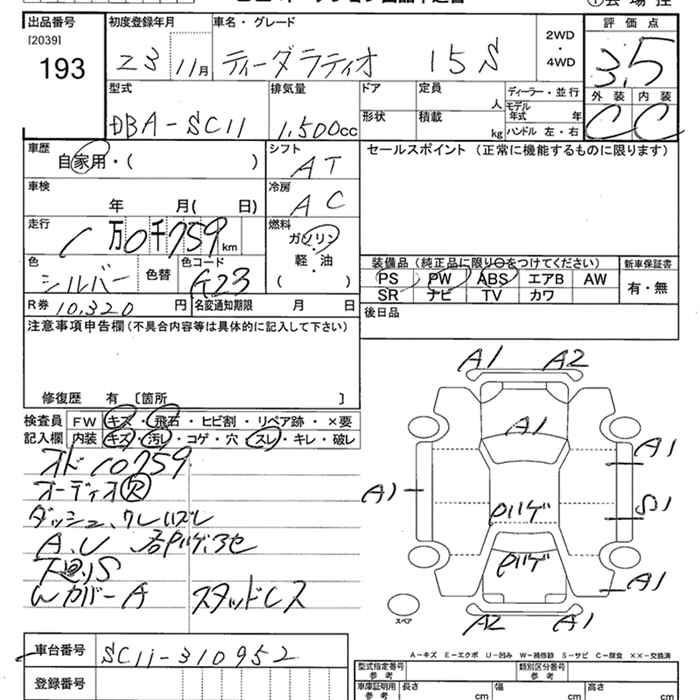 出品番号
[2039]
193
初度登録年月
23 11月
車名・グレード
ティーダラティオ 15S
2WD
・
4WD
評価点
3.5
外装 内装
C C
型式
DBA-SC11
排気量
1,500cc
ドア
形状
定員
人
積載
kg
ディーラー・並行
モデル
年式 年
ハンドル 左・右
車歴
自家用・( )
シフト
AT
セールスポイント (正常に機能するものに限ります)
車検
年 月( 日)
冷房
AC
走行
1万0千759km
燃料
ガソリン
軽・油
( )
色
シルバー
色替
色コード
G23
R券 10,320 円
名変通知期限 月 日
装備品 (純正品に限り○をつけてください)
PS PW ABS エアB AW
SR ナビ TV カワ
新車保証書
有・無
後日品
注意事項申告欄(不具合内容等は具体的に記入して下さい)
修復歴 有 [箇所 ]
検査員
記入欄
FW キズ・飛石・ヒビ割・リペア跡・×要
内装 キズ・汚レ・コゲ・穴・スレ・キレ・破レ
オド10759
オーディオ欠
ダッシュ、クレイズレ
A、U
下廻りS
Wカバー A スタッドレス
A1 A2
A1
A1
A1
S1
A1
A2 A1
スペア
A-キズ E-エクボ U-凹み W-補修跡 S-サビ C-腐食 ××-交換済
車台番号
SC11-310952
登録番号
型式指定番号
参考
類別区分番号
参考
車庫証明用
参考
長さ cm
幅 cm
高さ cm